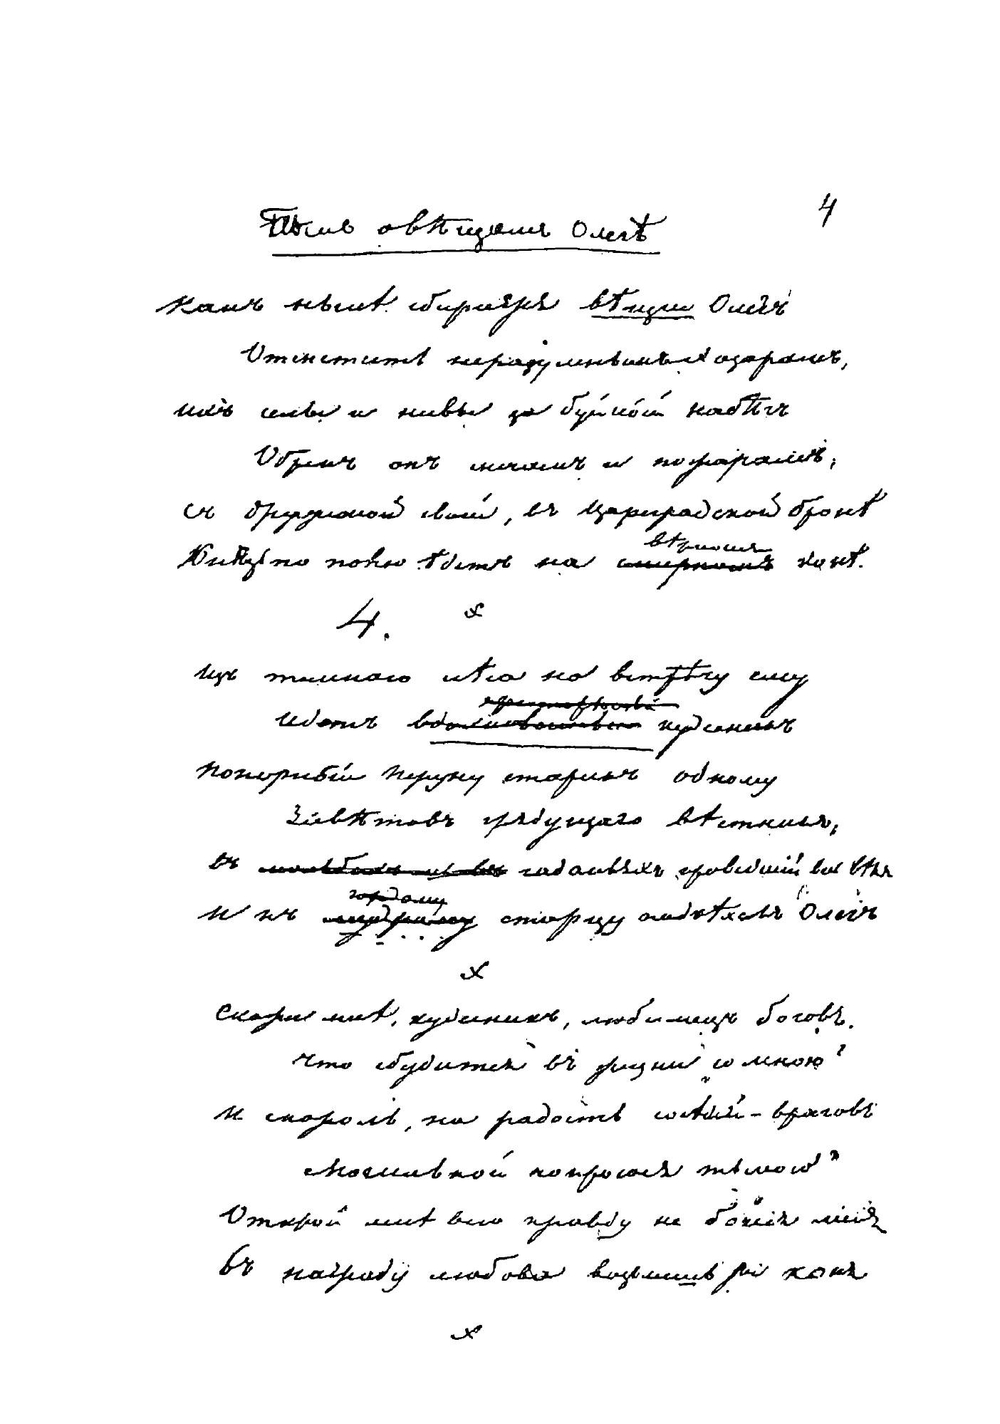 4
Пѣснь о вѣщемъ Олегѣ
Какъ нынѣ сбираетъ вѣщій Олегъ
Отмстить неразумнымъ Хозарамъ,
Ихъ селы и нивы за буйный набѣгъ
Обрекъ онъ мечамъ и пожарамъ;
Съ дружиной своей, въ Цареградской бронѣ
вѣрномъ
Князь по полю ѣдетъ на смирномъ конѣ.
4. x
Изъ темнаго лѣса на встрѣчу ему
Идетъ вдохновенный кудесникъ
Покорный Перуну старикъ одному
Завѣтовъ грядущаго вѣстникъ,
въ мольбахъ и въ гаданьяхъ проведшій весь вѣкъ
гордому
И къ мудрому старцу подъѣхалъ Олегъ
x
Скажи мнѣ, кудесникъ, любимецъ боговъ,
Что сбудется въ жизни со мною?
И скороль, на радость сосѣдей-враговъ
Могильной покроюсь землею?
Открой мнѣ всю правду не бойся меня
Въ награду любова возьмешь ты коня
x